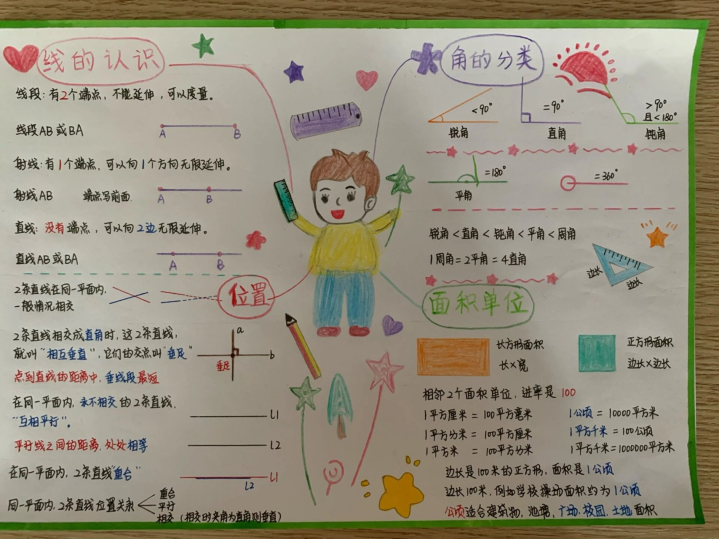 线的认识
线段：有2个端点，不能延伸，可以度量。
线段AB或BA
A B
射线：有1个端点，可以向1个方向无限延伸。
射线AB 端点写前面
A B
直线：没有端点，可以向2边无限延伸。
直线AB或BA
A B
位置
2条直线在同一平面内，
一般情况相交
2条直线相交成直角时，这2条直线，
就叫“相互垂直”，它们的交点叫“垂足”
a
b
垂足
点到直线的距离中，垂线段最短
在同一平面内，永不相交的2条直线，
“互相平行”。
L1
L2
平行线之间的距离，处处相等
在同一平面内，2条直线“重合”
L1
L2
同一平面内，2条直线位置关系
重合
平行
相交（相交的夹角为直角则垂直）
角的分类
<90°
锐角
=90°
直角
>90°
且<180°
钝角
=180°
平角
=360°
锐角<直角<钝角<平角<周角
1周角=2平角=4直角
边长
边长
面积单位
长方形面积
长×宽
正方形面积
边长×边长
相邻2个面积单位，进率是100
1平方厘米=100平方毫米
1平方分米=100平方厘米
1平方米=100平方分米
1公顷=10000平方米
1平方千米=100公顷
1平方千米=1000000平方米
边长是100米的正方形，面积是1公顷
边长100米，例如学校操场面积约为1公顷
公顷适合建筑物，池塘，广场，校园，土地面积